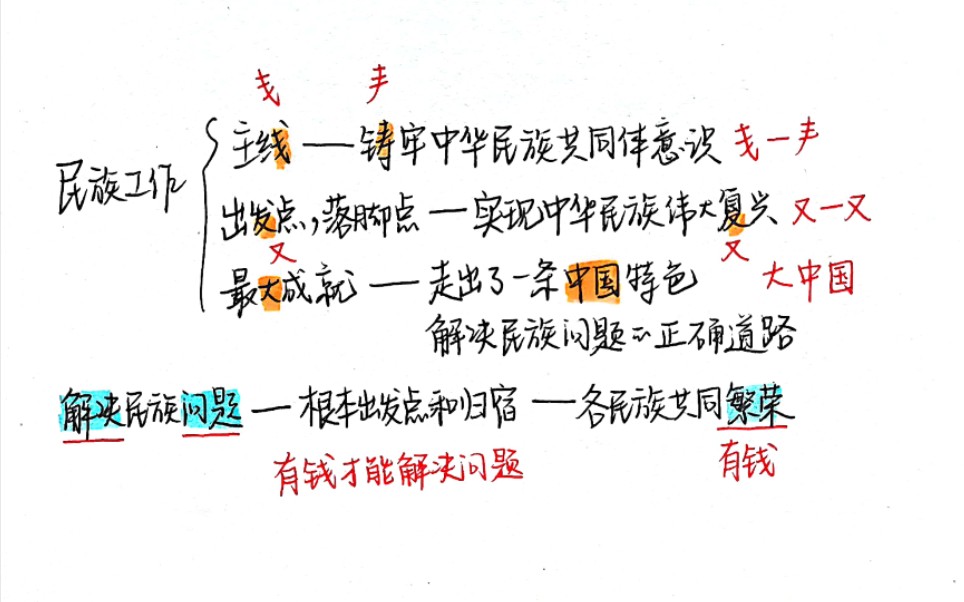 戋 ⺶
民族工作
主线 — 铸牢中华民族共同体意识 戋一
出发点,落脚点 — 实现中华民族伟大复兴 又一又
又 又
最大成就 — 走出了一条中国特色 大中国
解决民族问题的正确道路
解决民族问题 — 根本出发点和归宿 — 各民族共同繁荣
有钱才能解决问题 有钱